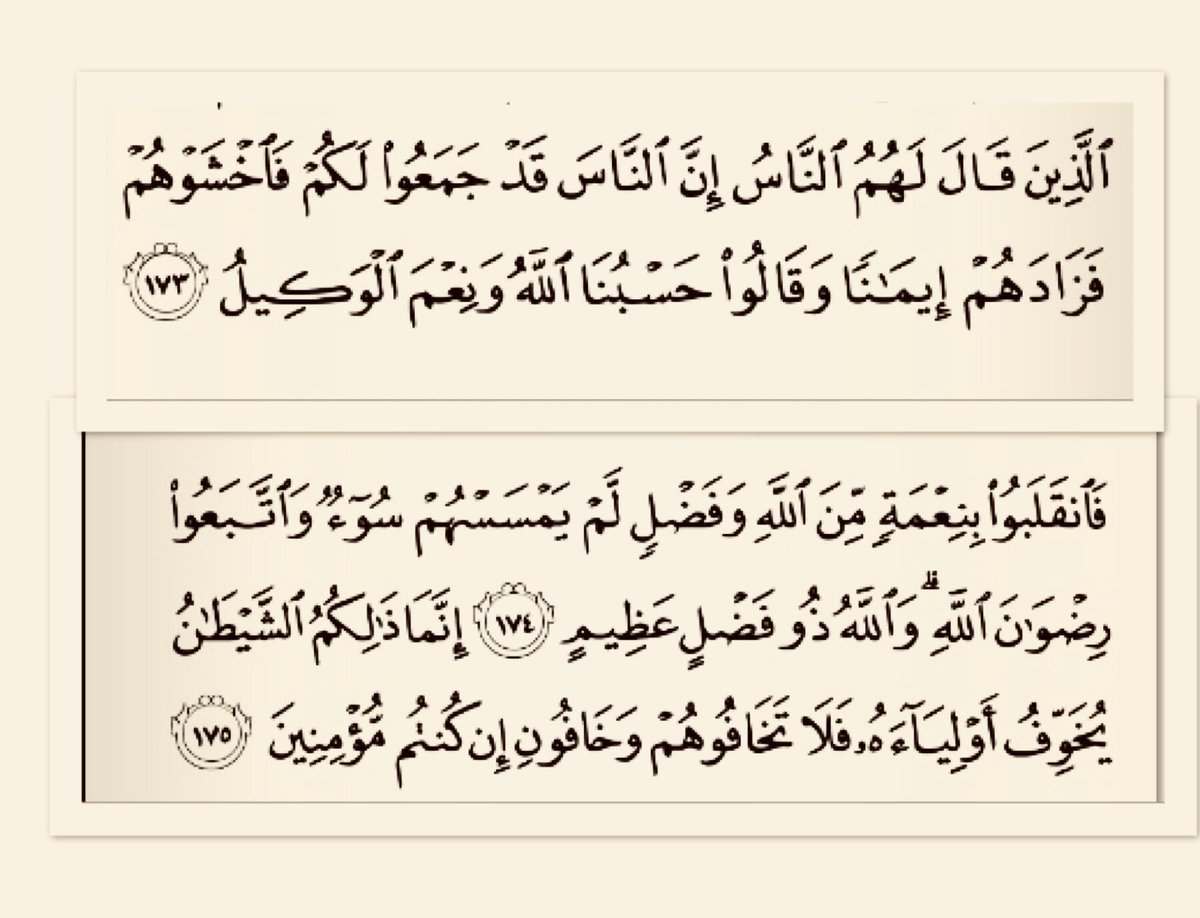 ٱلَّذِينَ قَالَ لَهُمُ ٱلنَّاسُ إِنَّ ٱلنَّاسَ قَدْ جَمَعُوا۟ لَكُمْ فَٱخْشَوْهُمْ
فَزَادَهُمْ إِيمَـٰنًا وَقَالُوا۟ حَسْبُنَا ٱللَّهُ وَنِعْمَ ٱلْوَكِيلُ ١٧٣
فَٱنقَلَبُوا۟ بِنِعْمَةٍ مِّنَ ٱللَّهِ وَفَضْلٍ لَّمْ يَمْسَسْهُمْ سُوٓءٌ وَٱتَّبَعُوا۟
رِضْوَٰنَ ٱللَّهِ ۗ وَٱللَّهُ ذُو فَضْلٍ عَظِيمٍ ١٧٤ إِنَّمَا ذَٰلِكُمُ ٱلشَّيْطَـٰنُ
يُخَوِّفُ أَوْلِيَآءَهُۥ فَلَا تَخَافُوهُمْ وَخَافُونِ إِن كُنتُم مُّؤْمِنِينَ ١٧٥